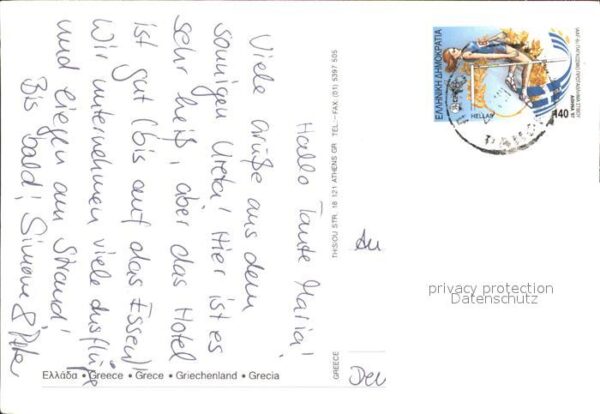 Hallo Tante Maria!
Viele Grüße aus dem
sonnigen Kreta! Hier ist es
sehr heiß, aber das Hotel
ist gut (bis auf das Essen!)
Wir unternehmen viele Ausflüge
und liegen am Strand!
Bis bald! Simone &
An
ΕΛΛΗΝΙΚΗ ΔΗΜΟΚΡΑΤΙΑ
HELLAS
140
THISIOU STR. 18 121 ATHENS GR TEL.-FAX (01) 5397 505
GREECE
privacy protection
Datenschutz
Ελλάδα • Greece • Grece • Griechenland • Grecia